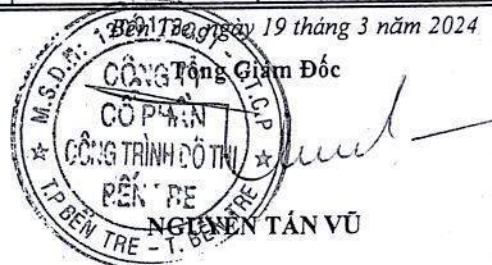 Bến Tre, ngày 19 tháng 3 năm 2024
Tổng Giám Đốc
CÔNG TY
CỔ PHẦN
CÔNG TRÌNH ĐÔ THỊ
BẾN TRE
T.P BẾN TRE - T. BẾN TRE
NGUYỄN TẤN VŨ